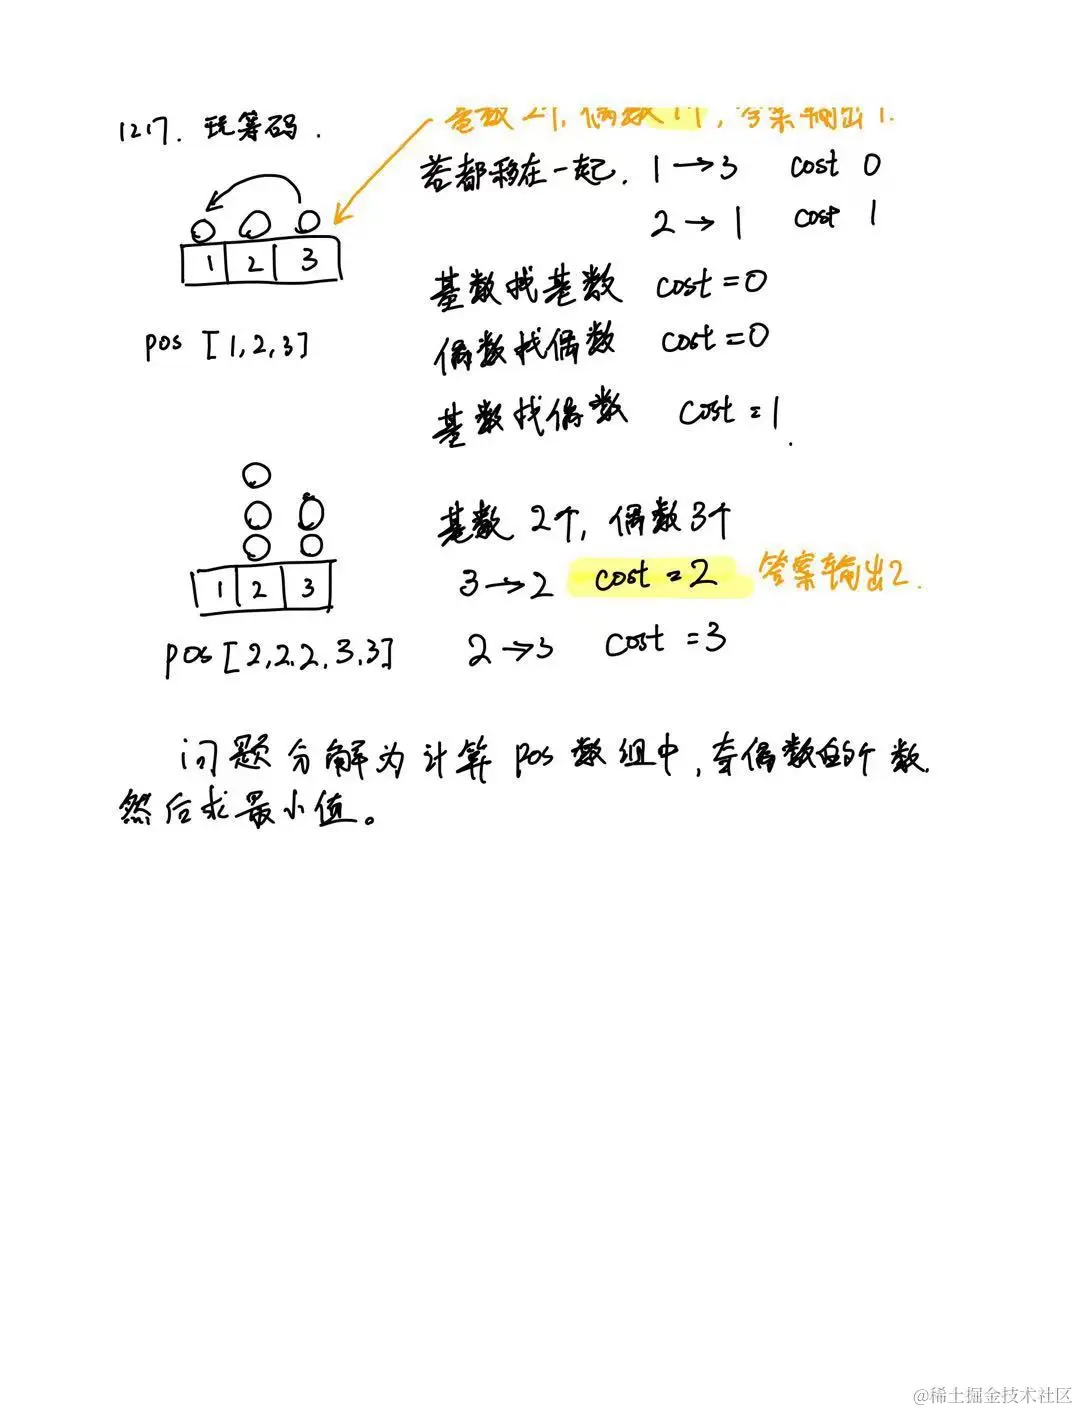 1217. 玩筹码.
基数2个, 偶数1个, 答案输出1.
若都移在一起. 1→3 cost 0
2→1 cost 1
1 2 3
pos [1,2,3]
基数找基数 cost=0
偶数找偶数 cost=0
基数找偶数 cost=1.
基数2个, 偶数3个
3→2 cost=2 答案输出2.
2→3 cost=3
1 2 3
pos [2,2,2,3,3]
问题分解为计算pos数组中,奇偶数的个数.
然后求最小值。
@稀土掘金技术社区